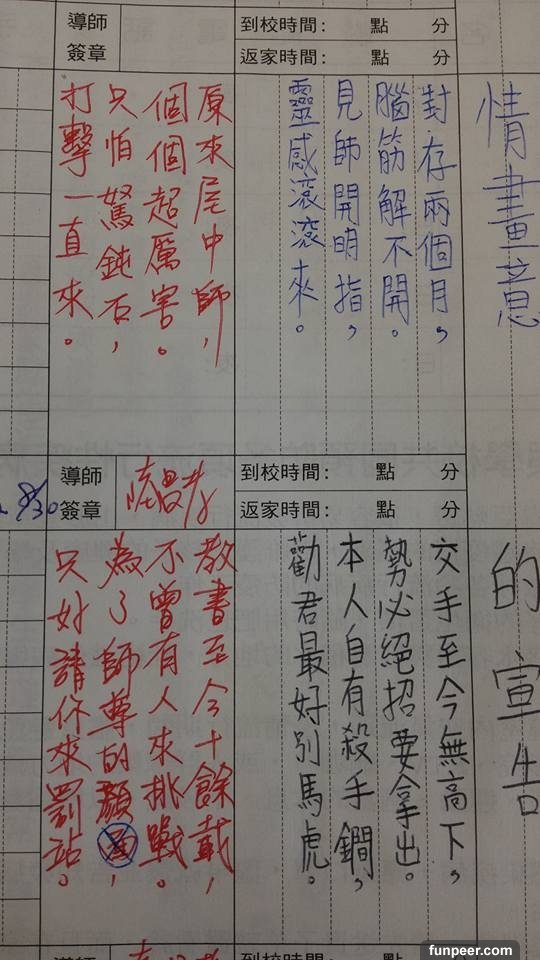 導師
簽章
到校時間： 點 分
返家時間： 點 分
情畫意
對存兩個月，
腦筋解不開。
見師開明指，
靈感滾滾來。
原來尾中師，
個個超厲害。
只怕駑鈍石，
打擊一直來。
導師
簽章
到校時間： 點 分
返家時間： 點 分
8/30
的宣告
交手至今無高下，
勢必絕招要拿出。
本人自有殺手鐧，
勸君最好別馬虎。
教書至今十餘載，
不曾有人來挑戰。
為了師尊的顏面，
只好請你來罰站。
導師
到校時間： 點 分
funpeer.com